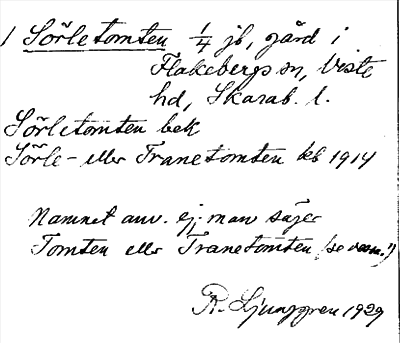 1 Sörletomten 1/4 jb, gård i
Flakebergs sn, Viste
hd, Skarab. l.
Sörletomten bek
Sörle- eller Tranetomten kb 1914
Namnet anv. ej; man säger
Tomten eller Tranetomten (se
R. Ljunggren 1929